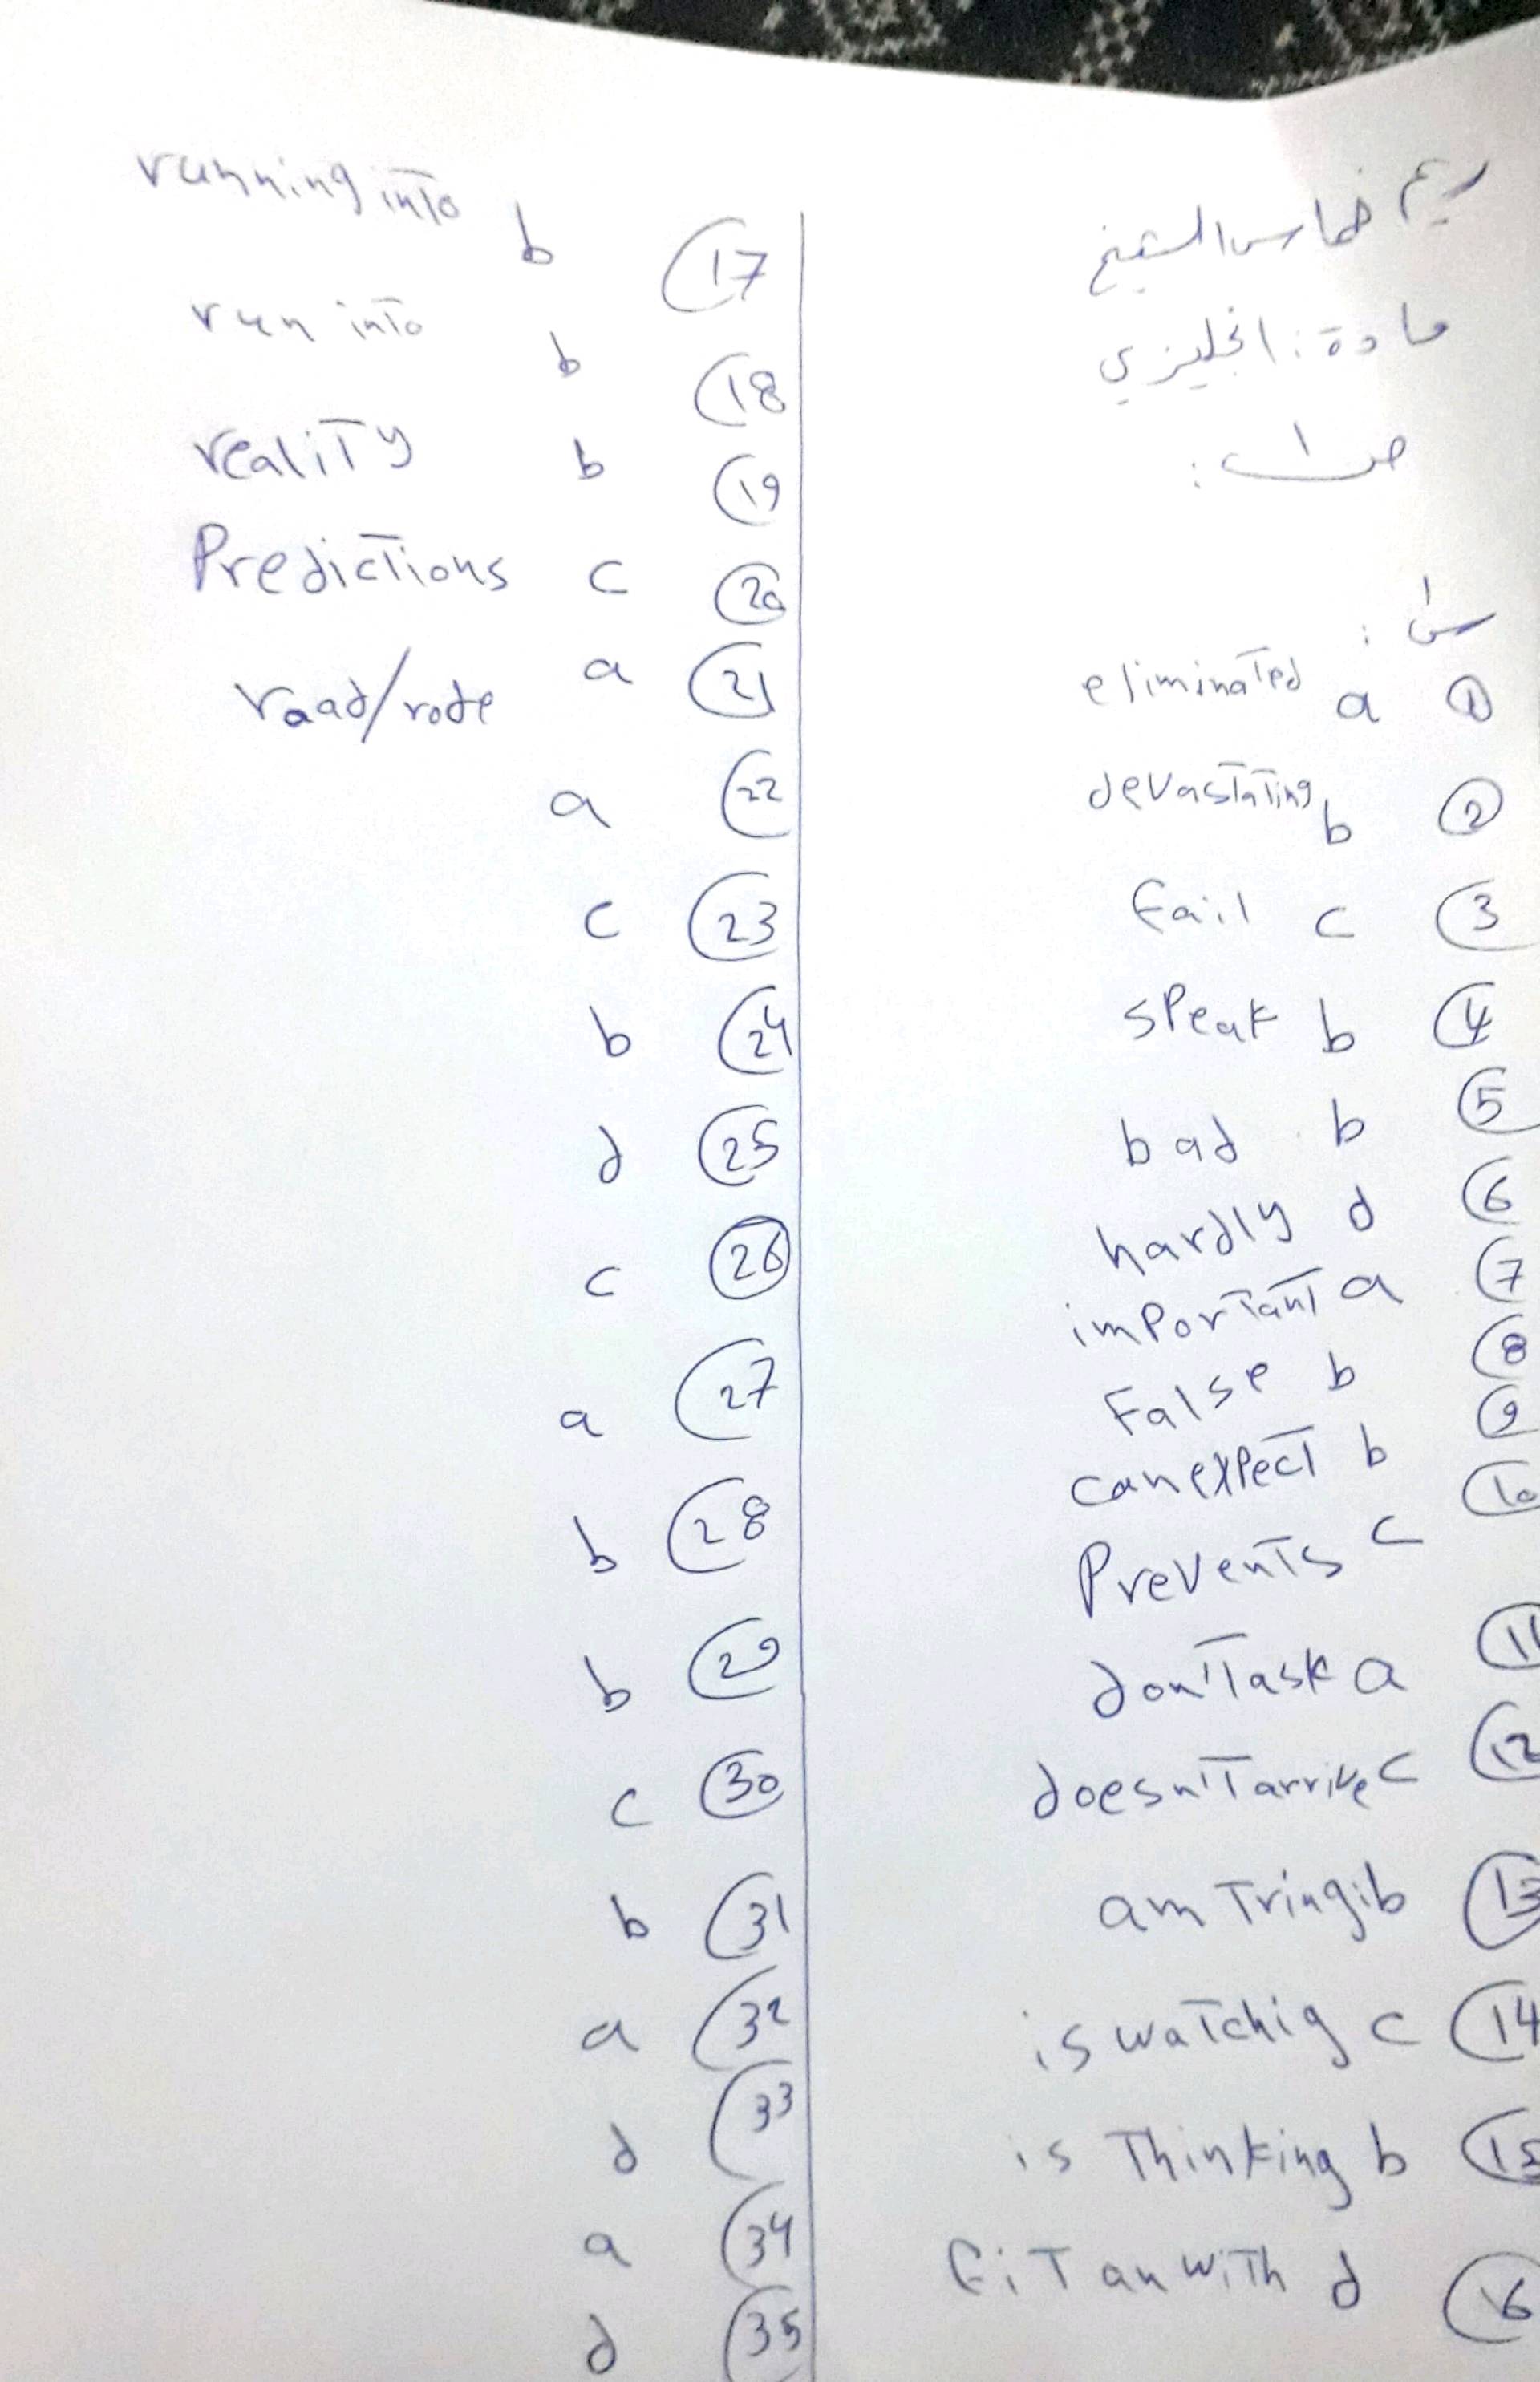 ريم خماس الشيخ
مادة: انجليزي
ص ١:
س ١:
1 a eliminated
2 b devastating
3 c fail
4 b speak
5 b bad
6 d hardly
7 a important
8 b False
9 b can expect
10 c Prevents
11 a don't ask
12 c doesn't arrive
13 b am Tring
14 c is watchig
15 b is Thinking
16 d fit an with
17 b running into
18 b run into
19 b reality
20 c Predictions
21 a raad/rode
22 a
23 c
24 b
25 d
26 c
27 a
28 b
29 b
30 c
31 b
32 a
33 d
34 a
35 d